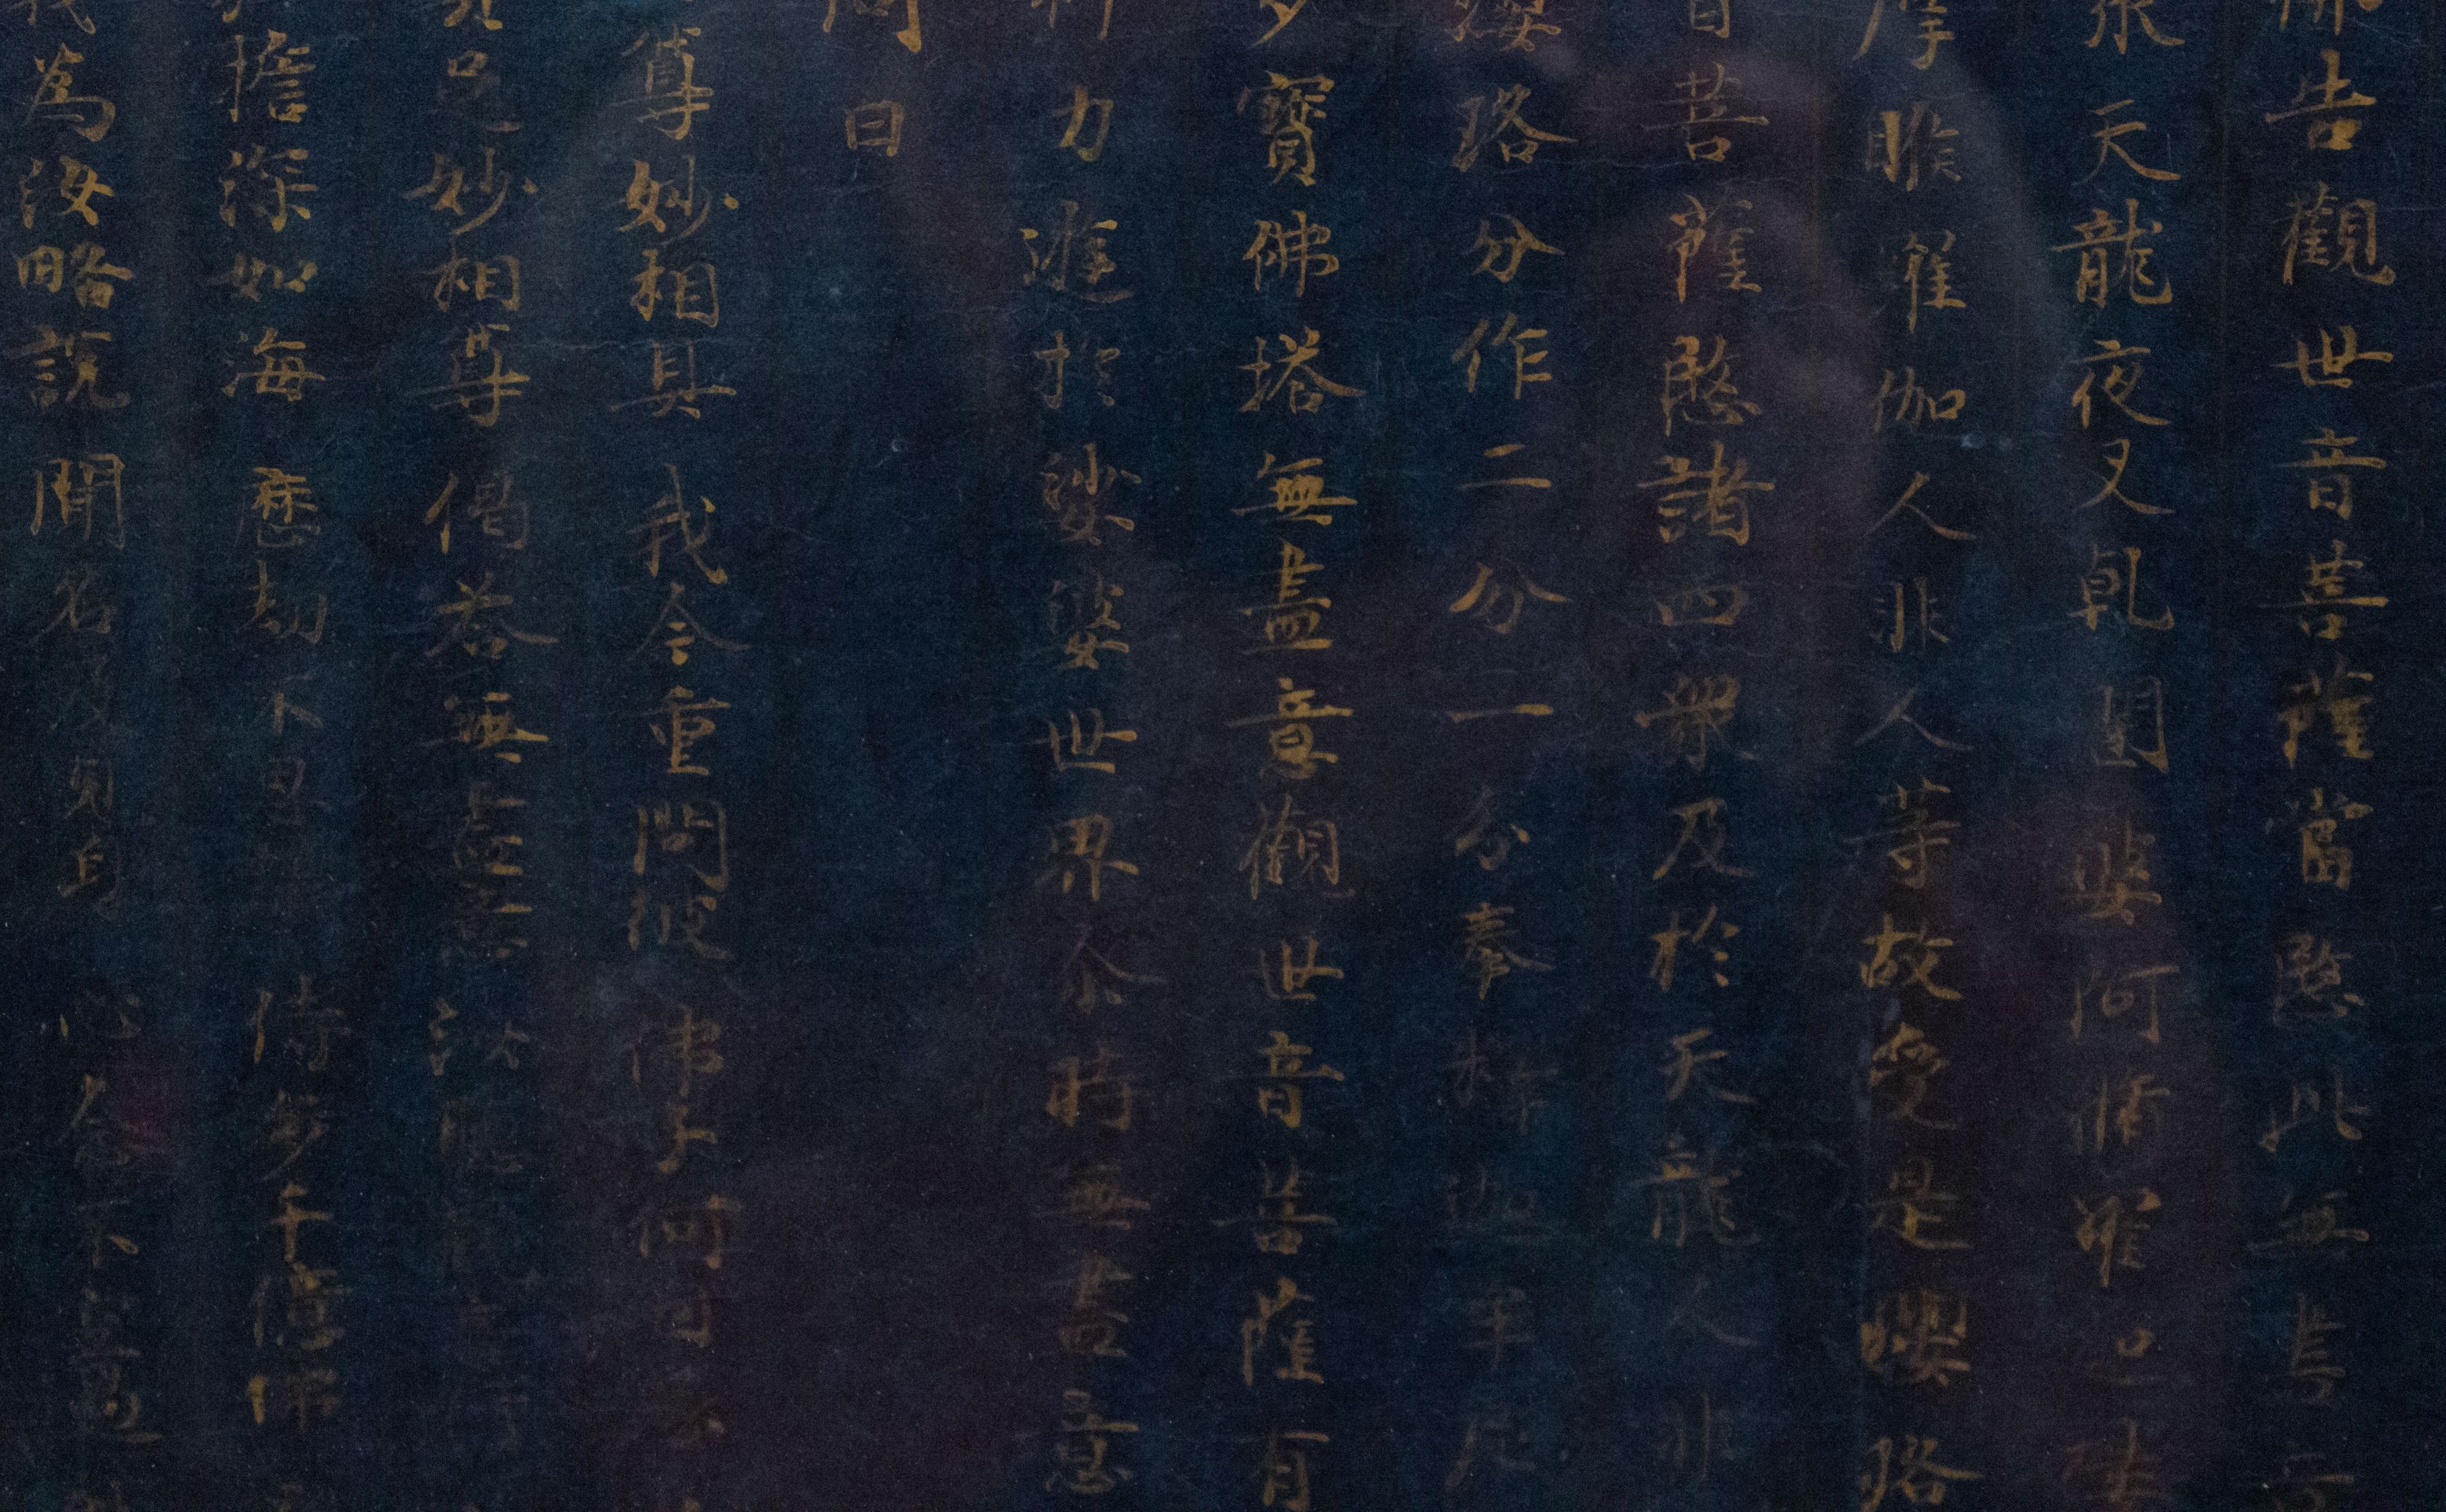 佛告觀世音菩薩當愍此無盡意
衆天龍夜叉乹闥婆阿脩羅迦樓
摩睺羅伽人非人等故受是瓔珞
音菩薩愍諸四衆及於天龍人非
瓔珞分作二分一分奉釋迦牟尼
多寶佛塔無盡意觀世音菩薩有
神力遊於娑婆世界尒時無盡意
問曰
尊妙相具 我今重問彼 佛子何因
具足妙相尊 偈荅無盡意 汝聽觀音行
擔深如海 歷劫不思議 侍多千億佛
我為汝略說 聞名及見身 心念不空過